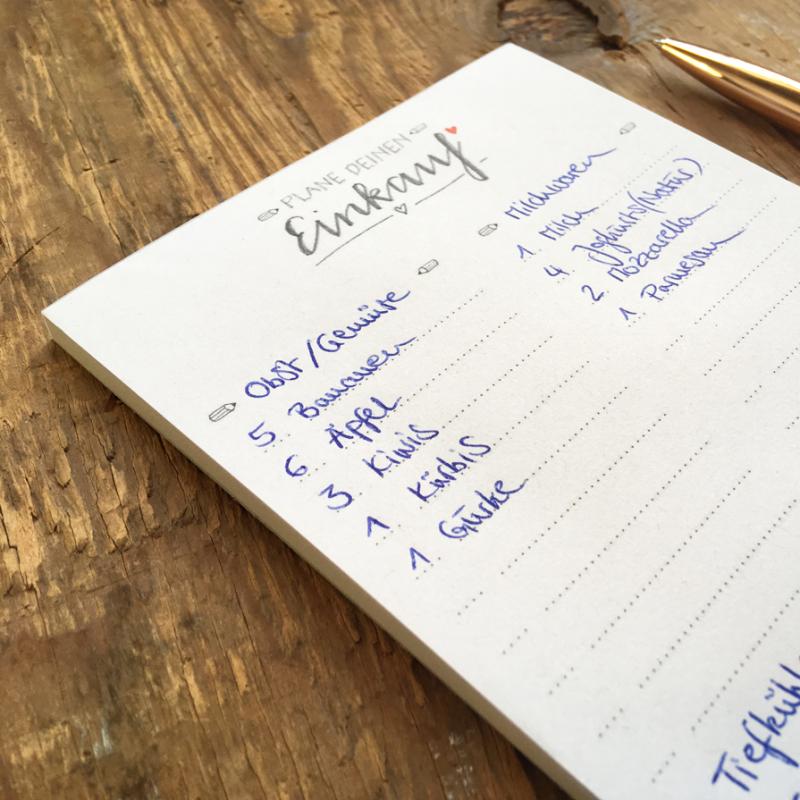 PLANE DEINEN
Einkauf
Obst/Gemüse
5 Bananen
6 Äpfel
3 Kiwis
1 Kürbis
1 Gurke
Milchwaren
1 Milch
4 Joghurts (Natur)
2 Mozzarella
1 Parmesan
Tiefkühl